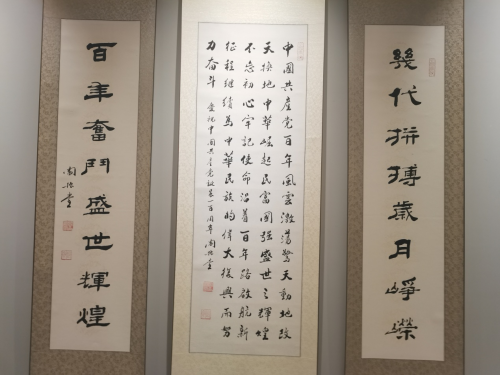 幾代拼搏歲月崢嶸
中國共產党百年風雲激蕩驚天動地改
天換地中華崛起民富國強盛世之輝煌
不忘初心牢記使命沿着百年路啟航新
征程继续為中華民族的偉大復興而努
力奋斗 慶祝中國共产党成立一百周年
百年奮鬥盛世輝煌